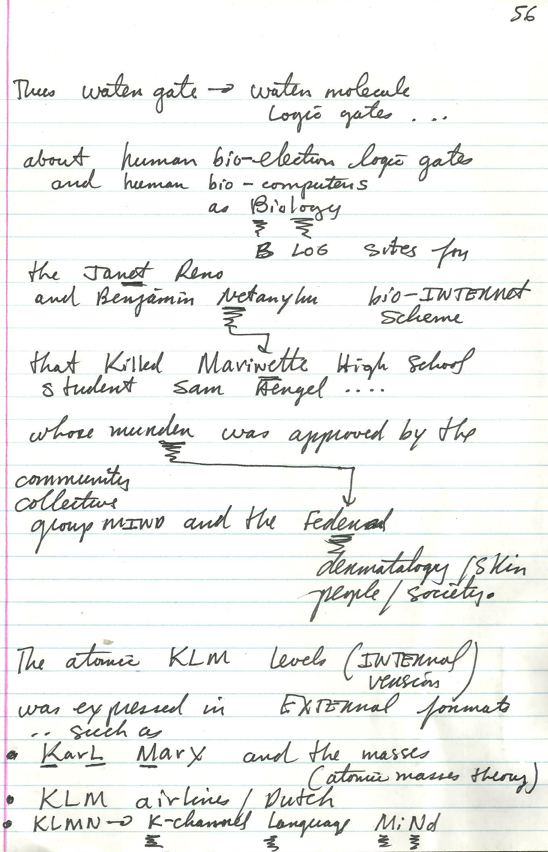 56
Thus water gate → water molecule
Logic gates ...
about human bio-election logic gates
and human bio-computers
as Biology
B LOG sites for
the Janet Reno
and Benjamin Netanyhu bio-INTERNET
Scheme
that Killed Marinette High School
student Sam Hengel ....
whose murder was approved by the
community
collective
group MIND and the Federal
dermatalogy/skin
people/society.
The atomic KLM levels (INTERNAL
version)
was expressed in EXTERNAL formats
.. such as
• KarL Marx and the masses
(atomic masses theory)
• KLM airlines/Dutch
• KLMN → K-channel Language MiNd